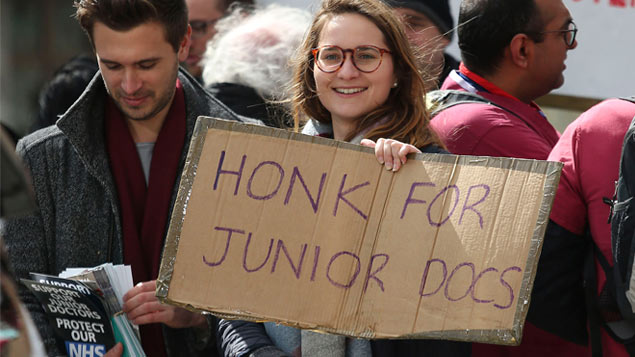 HONK FOR
JUNIOR DOCS
SUPPORT
OUR
DOCTORS
PROTECT
OUR
NHS